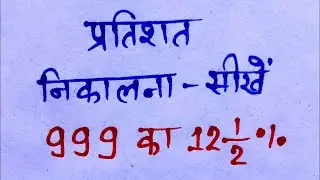 प्रतिशत
निकालना - सीखें
999 का 12 1/2 %